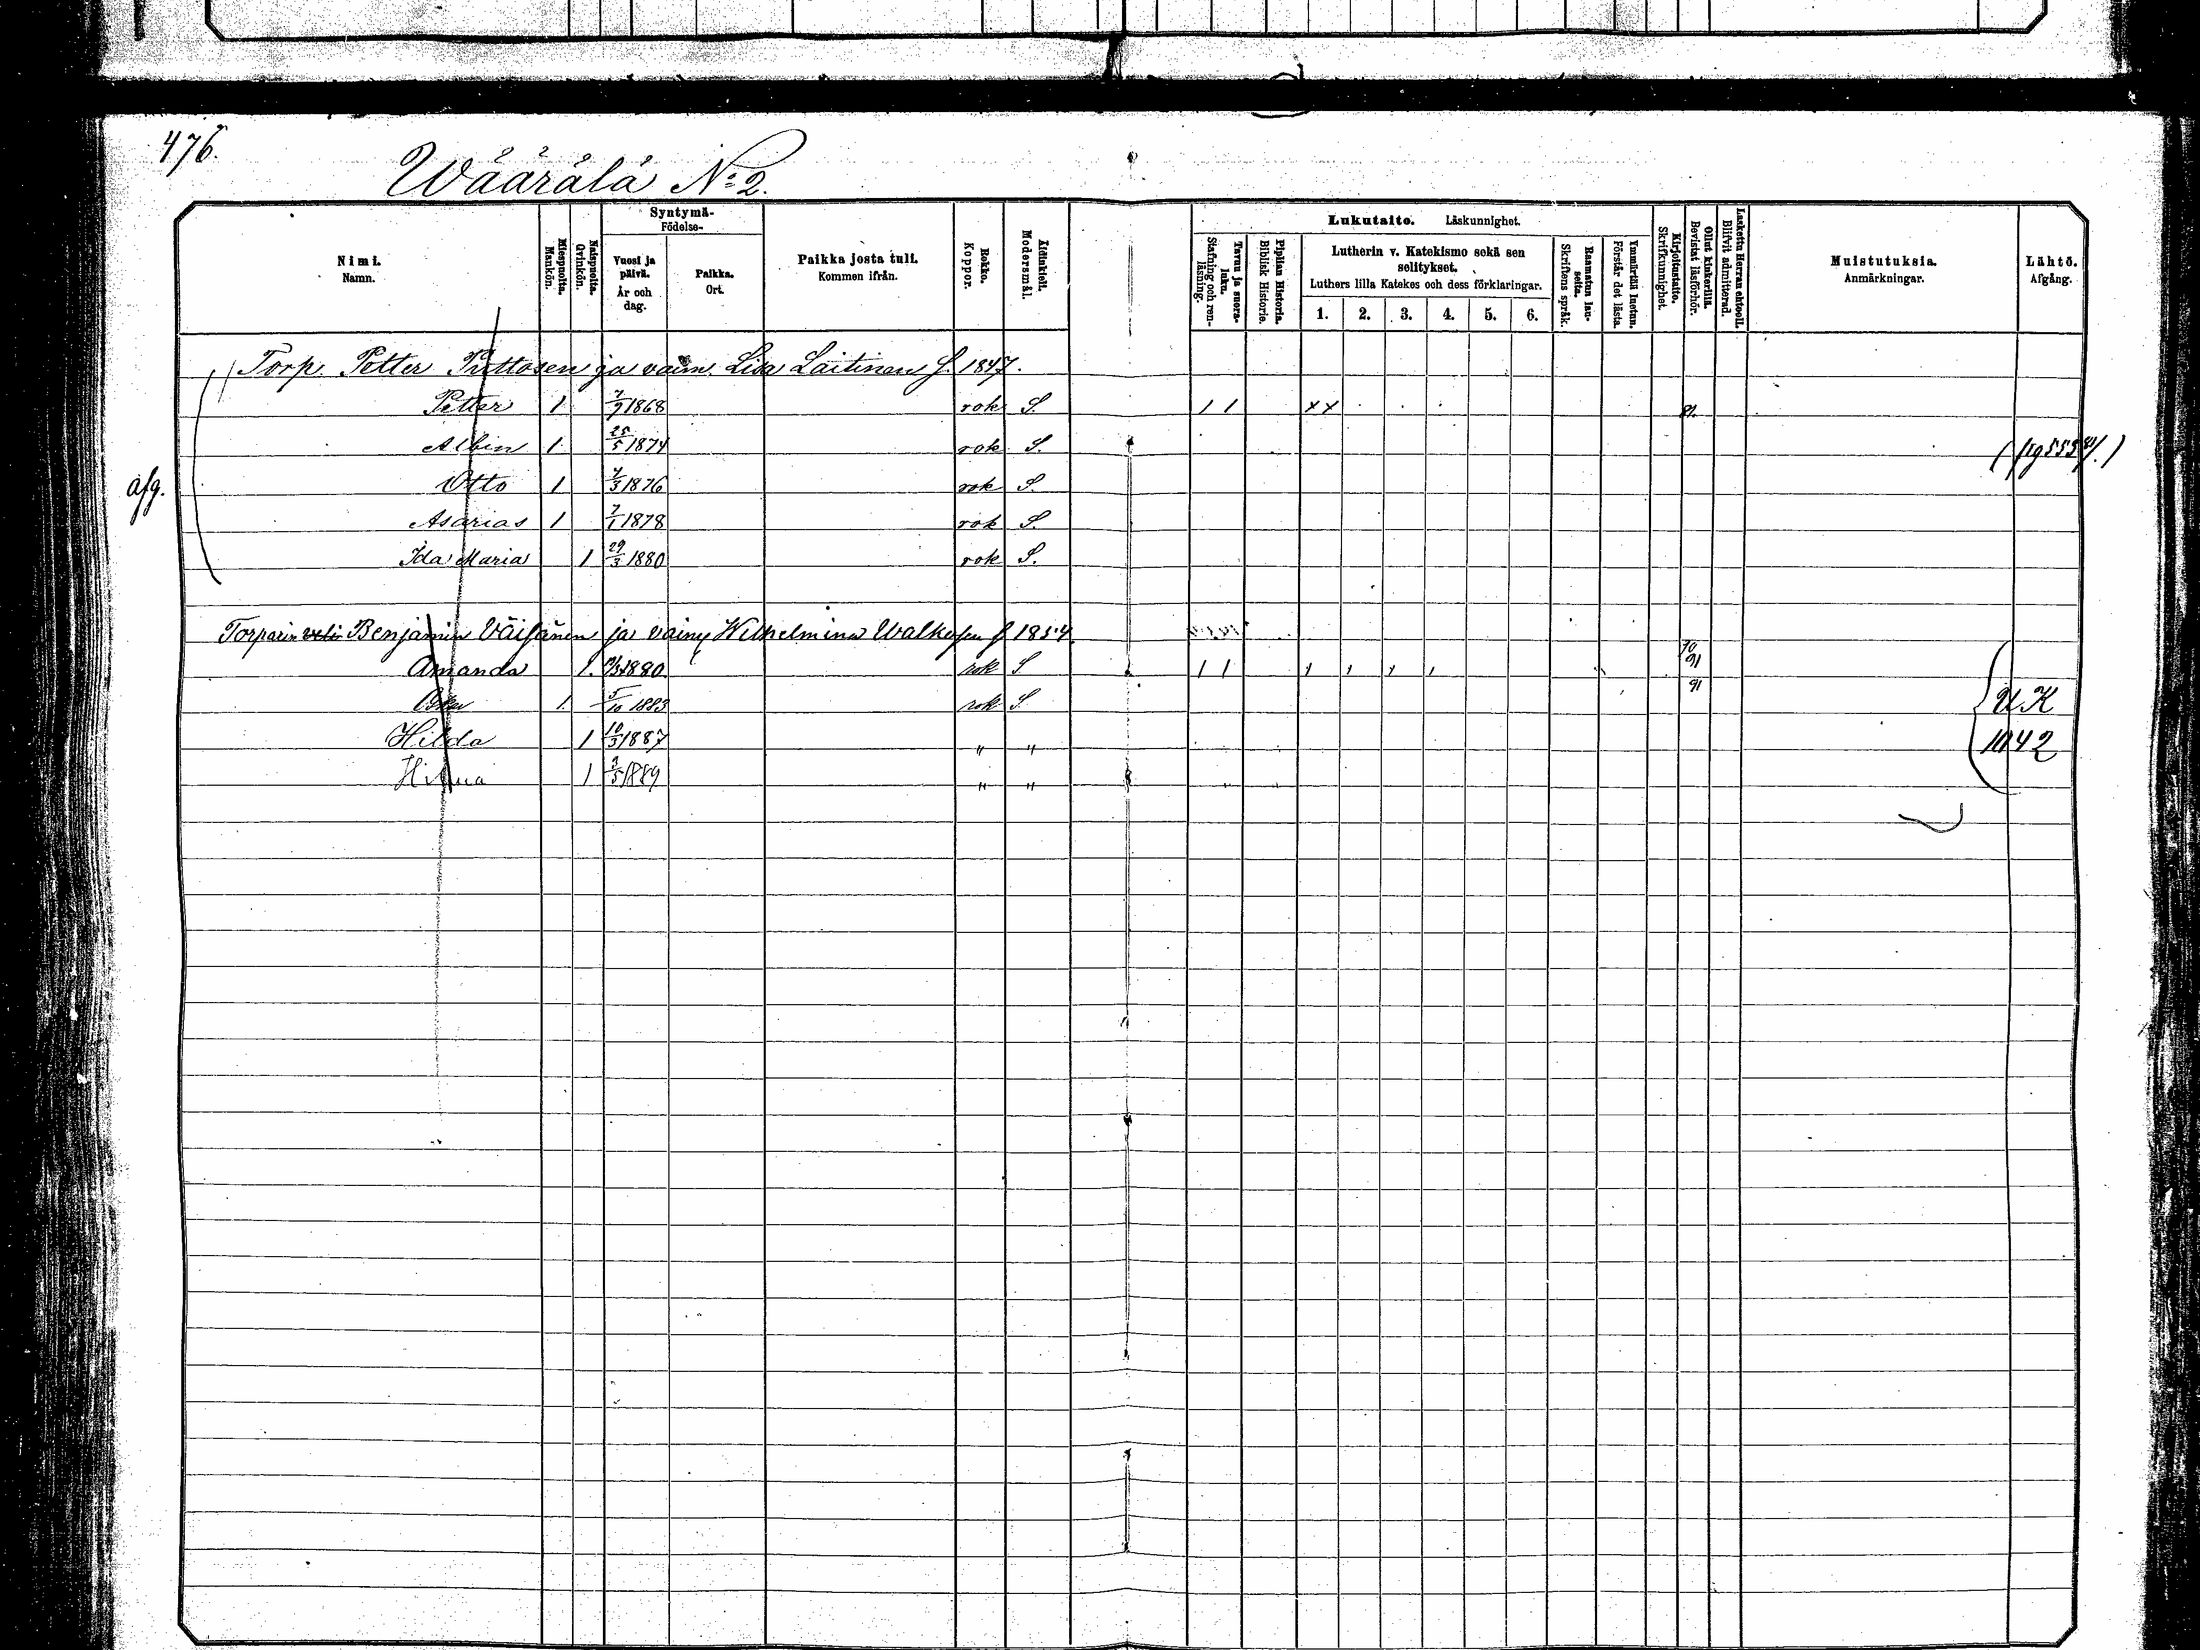 476.
Wäärälä No 2.
Nimi.
Namn.
Miespuolta.
Mankön.
Naispuolta.
Qvinkön.
Syntymä-
Födelse-
Vuosi ja
päivä.
År och
dag.
Paikka.
Ort.
Paikka josta tuli.
Kommen ifrån.
Rokko.
Koppor.
Äidinkieli.
Modersmål.
Lukutaito. Läskunnighet.
Tavuu ja suora-
luku.
Stafning och ren-
läsning.
Piplian Historia.
Biblisk Historie.
Lutherin v. Katekismo sekä sen
selitykset.
Luthers lilla Katekes och dess förklaringar.
1. 2. 3. 4. 5. 6.
Raamatun lau-
seita.
Skriftens språk.
Ymmärtää luetun.
Förstår det lästa.
Kirjoitustaito.
Skrifkunnighet.
Ollut kinkerillä.
Bevistat läsförhör.
Laskettu Herran ehtooll.
Blifvit admitterad.
Muistutuksia.
Anmärkningar.
Lähtö.
Afgång.
Torp. Petter Puttosen ja vaim. Lisa Laitinen f. 1847.
Petter 1 7/9 1868 rok S. 1 1 x x 81.
Albin 1 25/5 1874 rok S. (pg 553 81.)
afg. Otto 1 4/3 1876 rok S.
Asarias 1 7/1 1878 rok S.
Ida Maria 1 29/3 1880 rok S.
Torparin veli Benjamin Väisänen ja vaimo Wilhelmina Walkosen f. 1854.
Amanda 1. 1880 rok S 1 1 1 1 1 1 90 91
1. 5/10 1883 rok S. 91 U K
Hilda 1 10/3 1887 " " 1142
Hilma 1 2/5 1889 " "